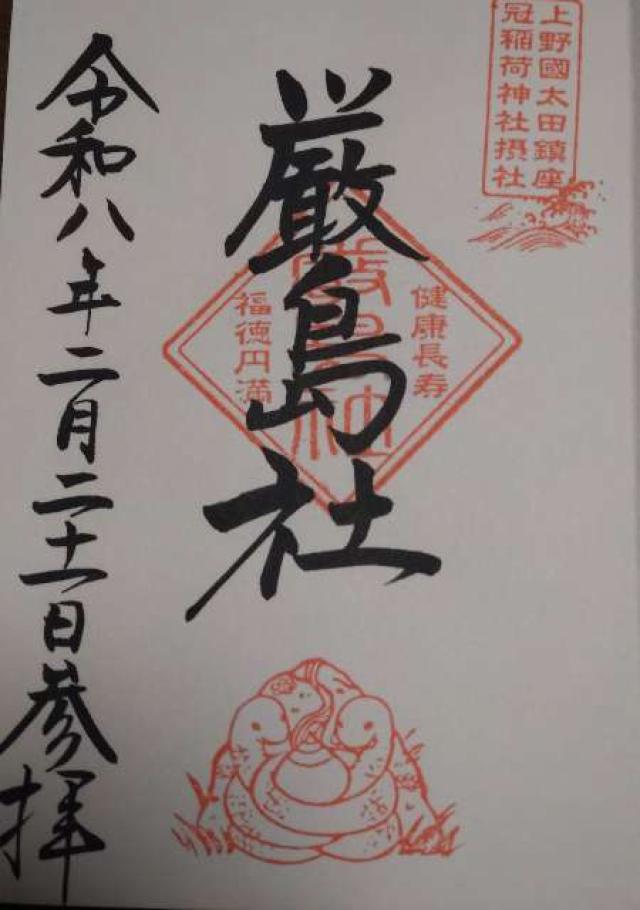 上野國太田鎮座
冠稲荷神社摂社
厳島社
健康長寿
厳島社
福徳円満
令和八年二月二十一日参拝